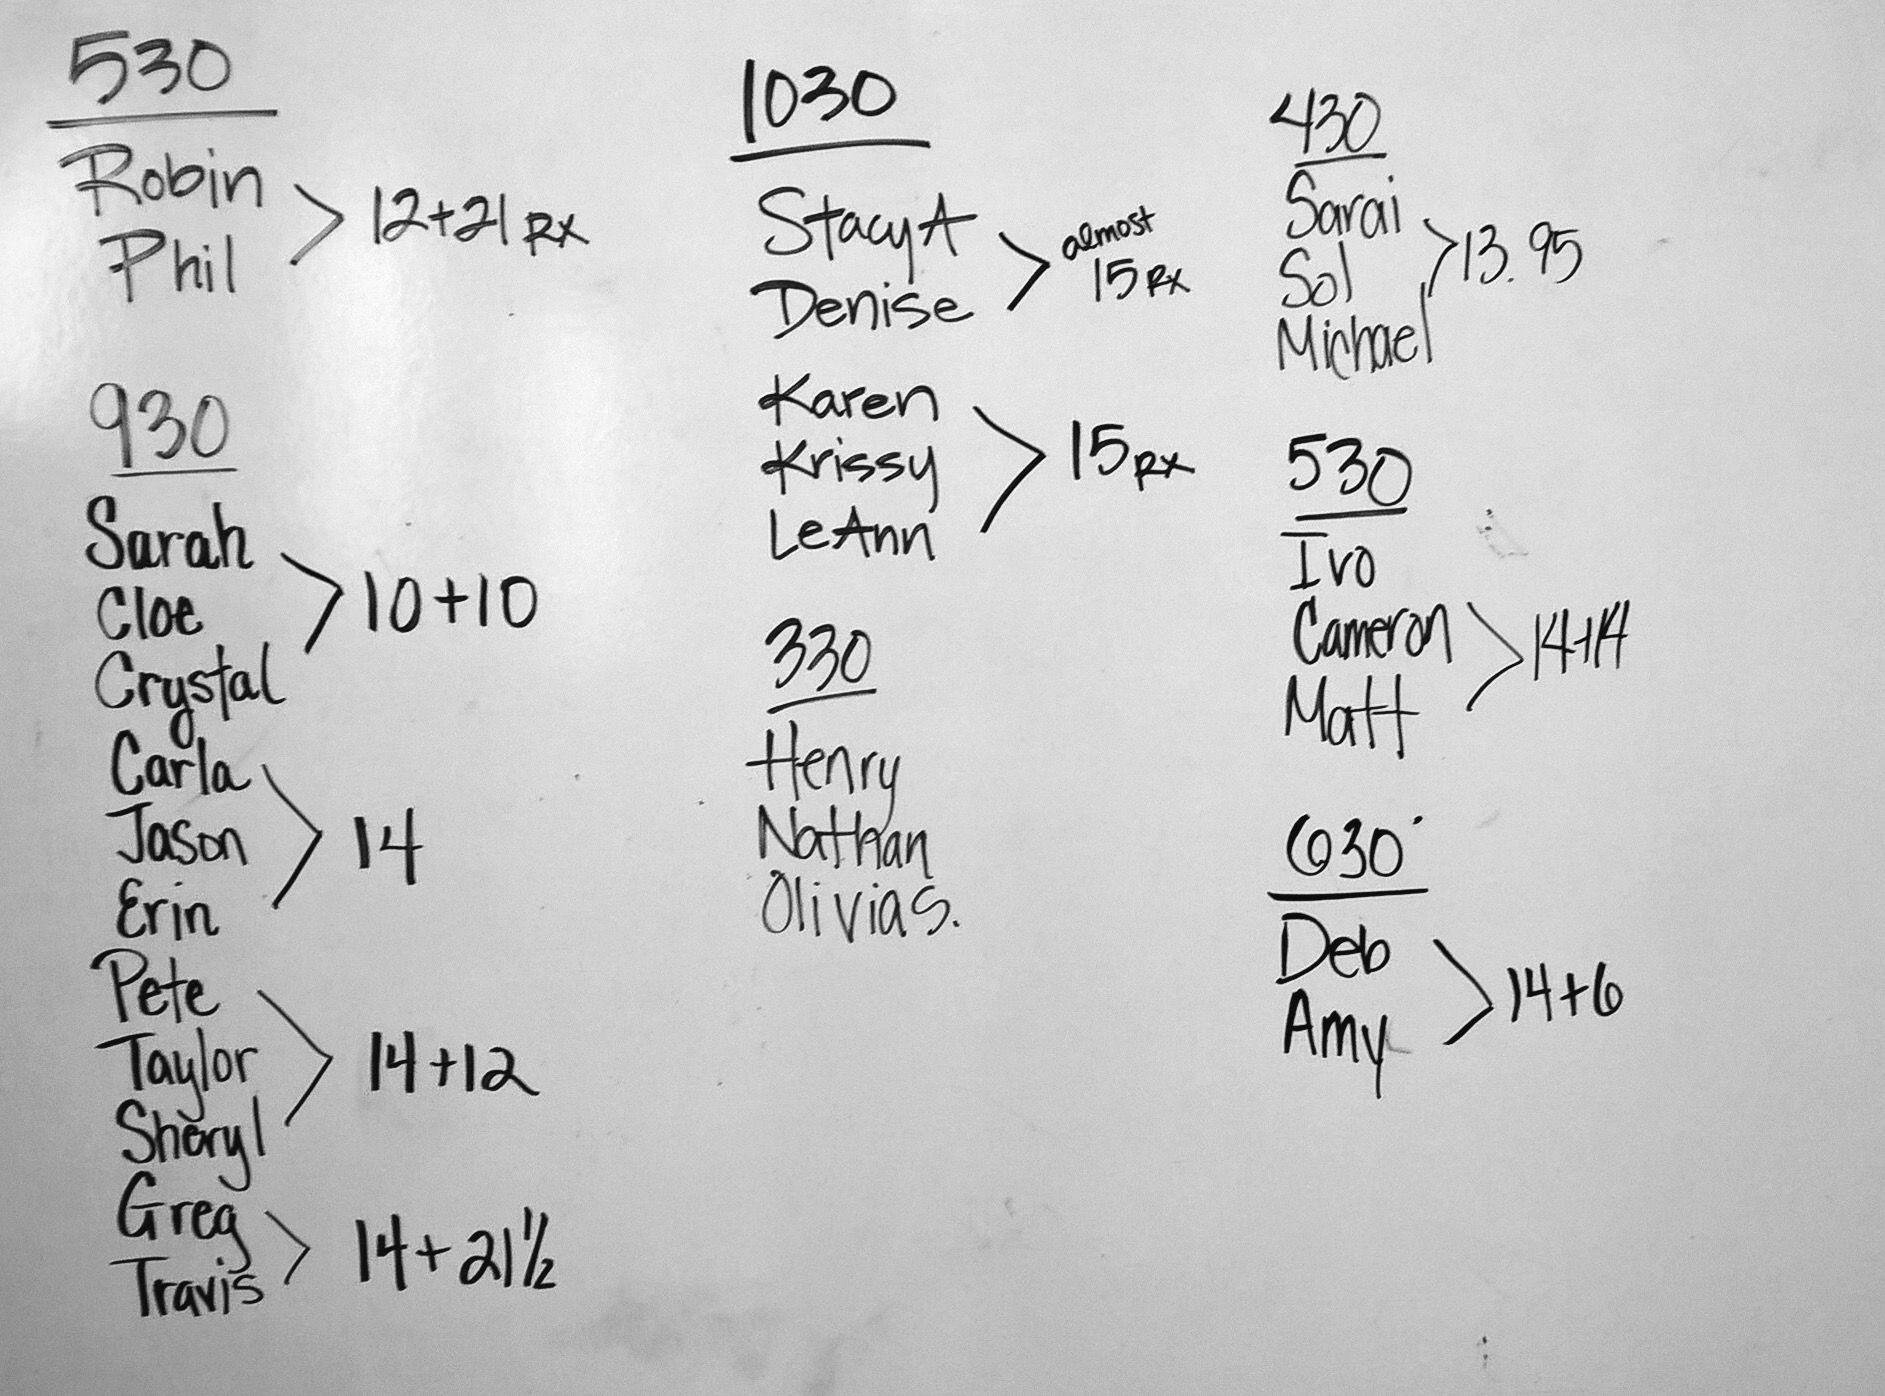 530
Robin
Phil
12+21 RX
930
Sarah
Cloe
Crystal
10+10
Carla
Jason
Erin
14
Pete
Taylor
Sheryl
14+12
Greg
Travis
14+21½
1030
Stacy A
Denise
almost
15 RX
Karen
Krissy
LeAnn
15 RX
330
Henry
Nathan
Olivia S.
430
Sarai
Sol
Michael
13.95
530
Ivo
Cameron
Matt
14+14
630
Deb
Amy
14+6